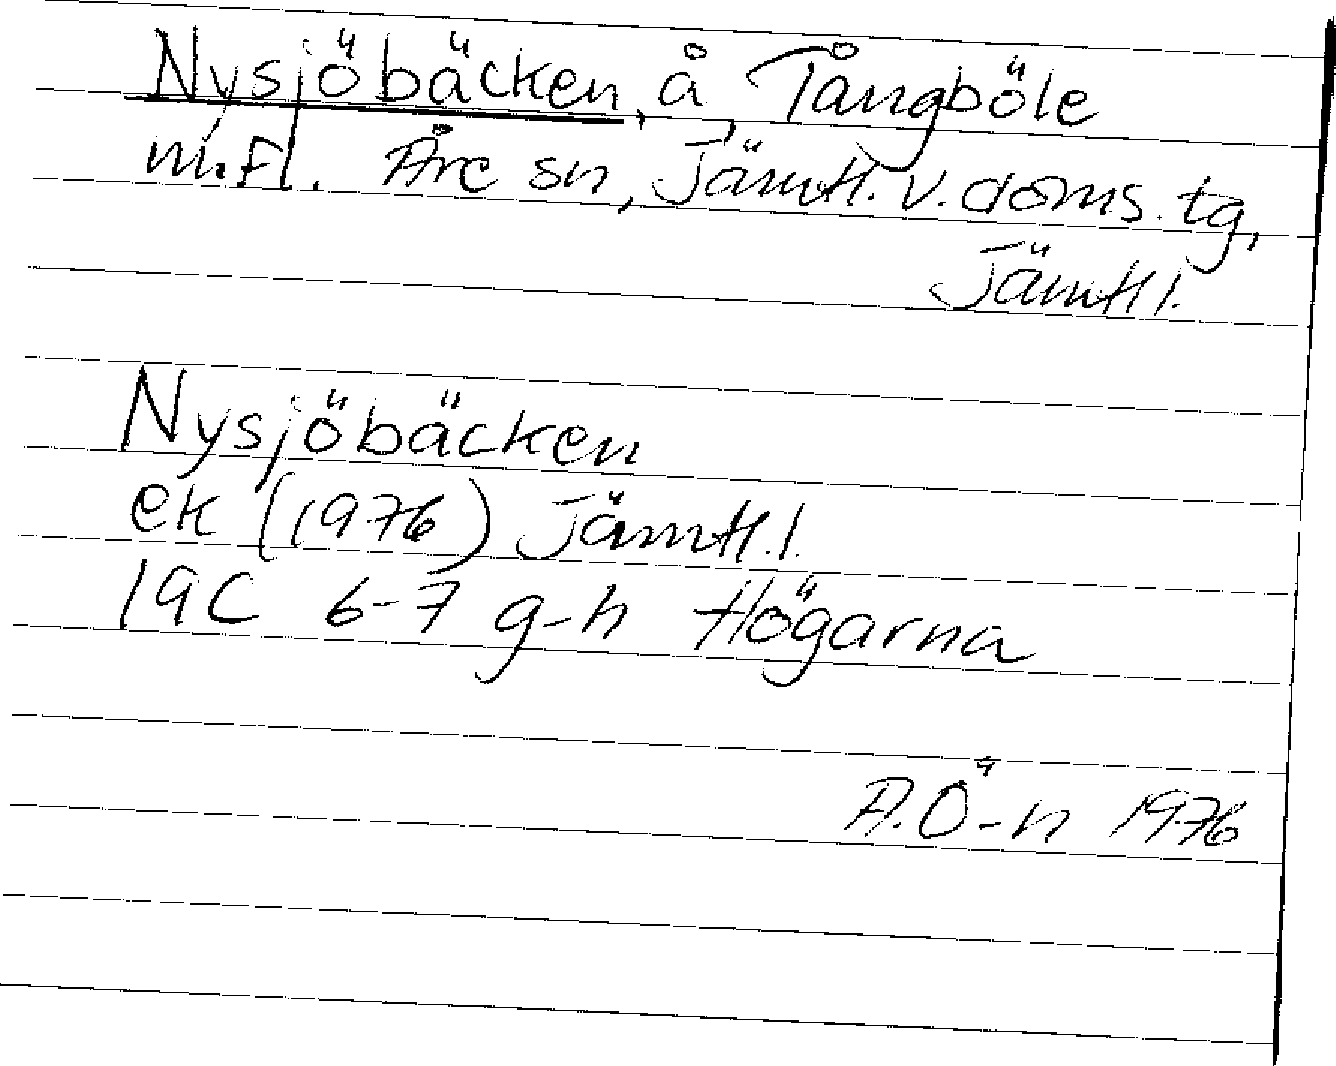 Nysjöbäcken, å, Tångböle
m.fl. Åre sn, Jämtl. v. doms. tg,
Jämtl l.
Nysjöbäcken
ek (1976) Jämtl. l.
19C 6-7 g-h Högarna
A.Ö-n 1976